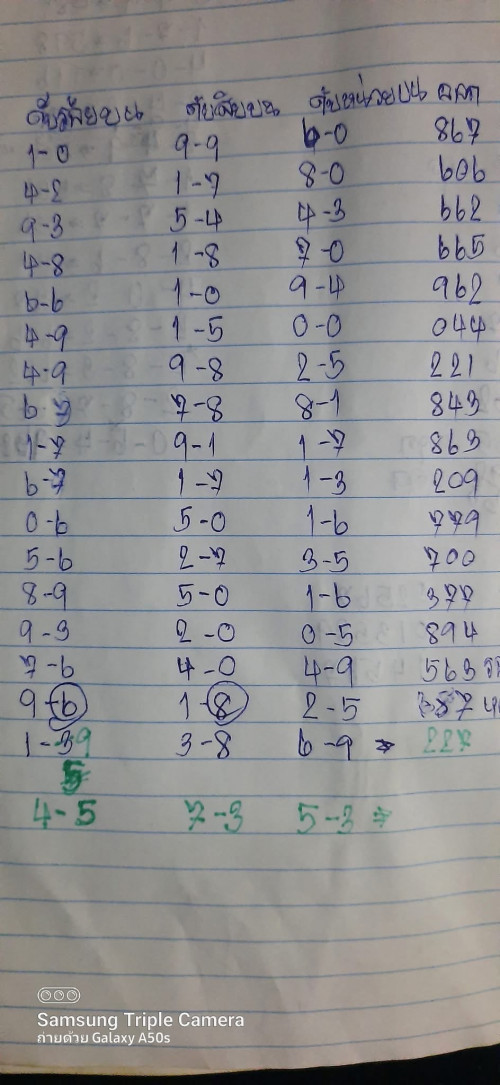 ดับร้อยบน ดับสิบบน ดับหน่วยบน ออก
1-0 9-9 6-0 867
4-2 1-7 8-0 606
9-3 5-4 4-3 662
4-8 1-8 7-0 665
6-6 1-0 9-4 962
4-9 1-5 0-0 044
4-9 9-8 2-5 221
6-7 7-8 8-1 843
1-7 9-1 1-7 863
6-7 1-7 1-3 209
0-6 5-0 1-6 779
5-6 2-7 3-5 700
8-9 5-0 1-6 377
9-3 2-0 0-5 894
7-6 4-0 4-9 563
9-6 1-8 2-5 387
1-39 3-8 6-9 → 227
5
4-5 7-3 5-3 →
Samsung Triple Camera
ถ่ายด้วย Galaxy A50s